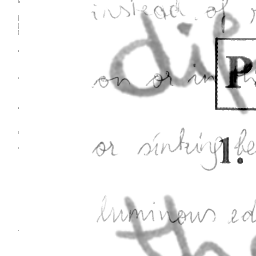 instead of
dif
P
on or in
or sinking be
1.
luminous ed
th